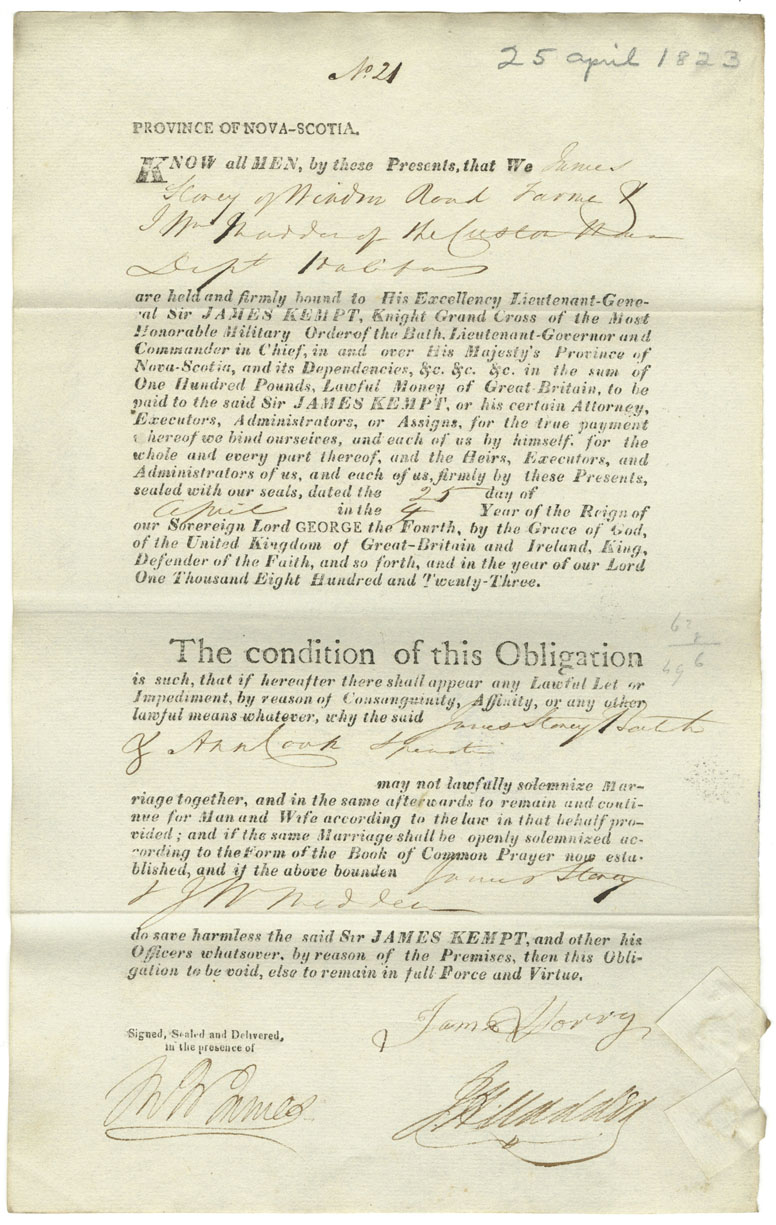 25 april 1823
No. 21
PROVINCE OF NOVA-SCOTIA.
KNOW all MEN, by these Presents, that We James
Storey of Windsor Road Farmer &
J Wm Madden of the Custom House
Dept Halifax
are held and firmly bound to His Excellency Lieutenant-Gene-
ral Sir JAMES KEMPT, Knight Grand Cross of the Most
Honorable Military Order of the Bath, Lieutenant-Governor and
Commander in Chief, in and over His Majesty's Province of
Nova-Scotia, and its Dependencies, &c. &c. &c. in the sum of
One Hundred Pounds, Lawful Money of Great-Britain, to be
paid to the said Sir JAMES KEMPT, or his certain Attorney,
Executors, Administrators, or Assigns, for the true payment
thereof we bind ourselves, and each of us by himself, for the
whole and every part thereof, and the Heirs, Executors, and
Administrators of us, and each of us, firmly by these Presents,
sealed with our seals, dated the 25 day of
April in the 4 Year of the Reign of
our Sovereign Lord GEORGE the Fourth, by the Grace of God,
of the United Kingdom of Great-Britain and Ireland, King,
Defender of the Faith, and so forth, and in the year of our Lord
One Thousand Eight Hundred and Twenty-Three.
The condition of this Obligation
is such, that if hereafter there shall appear any Lawful Let or
Impediment, by reason of Consanguinity, Affinity, or any other
lawful means whatever, why the said James Storey Batch
& Ann Cook Spinster
may not lawfully solemnize Mar-
riage together, and in the same afterwards to remain and conti-
nue for Man and Wife according to the law in that behalf pro-
vided; and if the same Marriage shall be openly solemnized ac-
cording to the Form of the Book of Common Prayer now esta-
blished, and if the above bounden James Storey
& J W Madden
do save harmless the said Sir JAMES KEMPT, and other his
Officers whatsover, by reason of the Premises, then this Obli-
gation to be void, else to remain in full Force and Virtue.
James Storry
Signed, Sealed and Delivered,
in the presence of
J W Madden